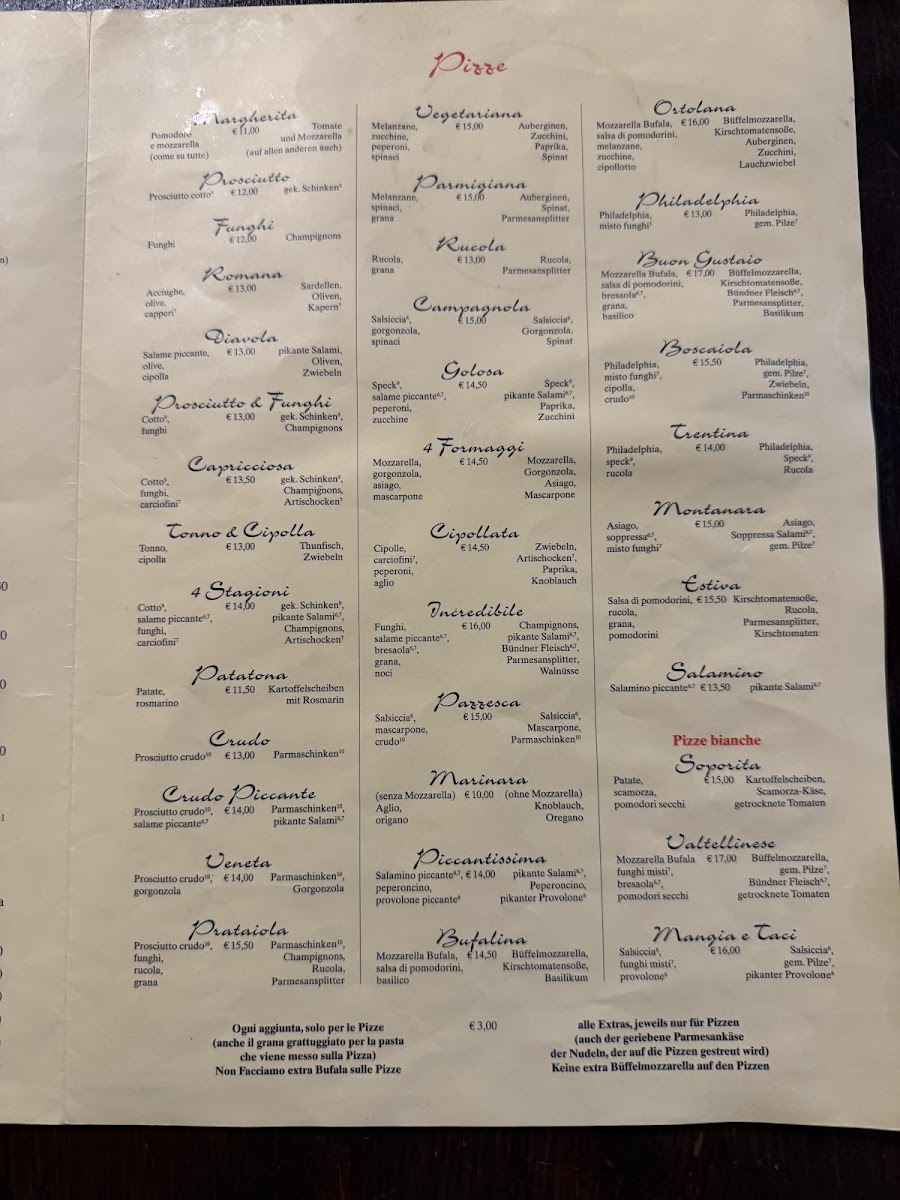 Pizze
Margherita
Pomodoro € 11,00 Tomate
e mozzarella und Mozzarella
(come su tutte) (auf allen anderen auch)
Prosciutto
Prosciutto cotto⁹ € 12,00 gek. Schinken⁹
Funghi
Funghi € 12,00 Champignons
Romana
Acciughe, € 13,00 Sardellen,
olive, Oliven,
capperi⁷ Kapern⁷
Diavola
Salame piccante, € 13,00 pikante Salami,
olive, Oliven,
cipolla Zwiebeln
Prosciutto & Funghi
Cotto⁹, € 13,00 gek. Schinken⁹,
funghi Champignons
Capricciosa
Cotto⁹, € 13,50 gek. Schinken⁹,
funghi, Champignons,
carciofini⁷ Artischocken⁷
Tonno & Cipolla
Tonno, € 13,00 Thunfisch,
cipolla Zwiebeln
4 Stagioni
Cotto⁹, € 14,00 gek. Schinken⁹,
salame piccante⁶,⁷, pikante Salami⁶,⁷,
funghi, Champignons,
carciofini⁷ Artischocken⁷
Patatona
Patate, € 11,50 Kartoffelscheiben
rosmarino mit Rosmarin
Crudo
Prosciutto crudo¹⁰ € 13,00 Parmaschinken¹⁰
Crudo Piccante
Prosciutto crudo¹⁰, € 14,00 Parmaschinken¹⁰,
salame piccante⁶,⁷ pikante Salami⁶,⁷
Veneta
Prosciutto crudo¹⁰, € 14,00 Parmaschinken¹⁰,
gorgonzola Gorgonzola
Prataiola
Prosciutto crudo¹⁰, € 15,50 Parmaschinken¹⁰,
funghi, Champignons,
rucola, Rucola,
grana Parmesansplitter
Vegetariana
Melanzane, € 15,00 Auberginen,
zucchine, Zucchini,
peperoni, Paprika,
spinaci Spinat
Parmigiana
Melanzane, € 15,00 Auberginen,
spinaci, Spinat,
grana Parmesansplitter
Rucola
Rucola, € 13,00 Rucola,
grana Parmesansplitter
Campagnola
Salsiccia⁶, € 15,00 Salsiccia⁶,
gorgonzola, Gorgonzola,
spinaci Spinat
Golosa
Speck⁹, € 14,50 Speck⁹,
salame piccante⁶,⁷, pikante Salami⁶,⁷,
peperoni, Paprika,
zucchine Zucchini
4 Formaggi
Mozzarella, € 14,50 Mozzarella,
gorgonzola, Gorgonzola,
asiago, Asiago,
mascarpone Mascarpone
Cipollata
Cipolle, € 14,50 Zwiebeln,
carciofini⁷, Artischocken⁷,
peperoni, Paprika,
aglio Knoblauch
Incredibile
Funghi, € 16,00 Champignons,
salame piccante⁶,⁷, pikante Salami⁶,⁷,
bresaola⁶,⁷, Bündner Fleisch⁶,⁷,
grana, Parmesansplitter,
noci Walnüsse
Pazzesca
Salsiccia⁶, € 15,00 Salsiccia⁶,
mascarpone, Mascarpone,
crudo¹⁰ Parmaschinken¹⁰
Marinara
(senza Mozzarella) € 10,00 (ohne Mozzarella)
Aglio, Knoblauch,
origano Oregano
Piccantissima
Salamino piccante⁶,⁷, € 14,00 pikante Salami⁶,⁷,
peperoncino, Peperoncino,
provolone piccante⁶ pikanter Provolone⁶
Bufalina
Mozzarella Bufala, € 14,50 Büffelmozzarella,
salsa di pomodorini, Kirschtomatensoße,
basilico Basilikum
Ortolana
Mozzarella Bufala, € 16,00 Büffelmozzarella,
salsa di pomodorini, Kirschtomatensoße,
melanzane, Auberginen,
zucchine, Zucchini,
cipollotto Lauchzwiebel
Philadelphia
Philadelphia, € 13,00 Philadelphia,
misto funghi⁷ gem. Pilze⁷
Buon Gustaio
Mozzarella Bufala, € 17,00 Büffelmozzarella,
salsa di pomodorini, Kirschtomatensoße,
bresaola⁶,⁷, Bündner Fleisch⁶,⁷,
grana, Parmesansplitter,
basilico Basilikum
Boscaiola
Philadelphia, € 15,50 Philadelphia,
misto funghi⁷, gem. Pilze⁷,
cipolla, Zwiebeln,
crudo¹⁰ Parmaschinken¹⁰
Trentina
Philadelphia, € 14,00 Philadelphia,
speck⁹, Speck⁹,
rucola Rucola
Montanara
Asiago, € 15,00 Asiago,
soppressa⁶,⁷, Soppressa Salami⁶,⁷,
misto funghi⁷ gem. Pilze⁷
Estiva
Salsa di pomodorini, € 15,50 Kirschtomatensoße,
rucola, Rucola,
grana, Parmesansplitter,
pomodorini Kirschtomaten
Salamino
Salamino piccante⁶,⁷ € 13,50 pikante Salami⁶,⁷
Pizze bianche
Soporita
Patate, € 15,00 Kartoffelscheiben,
scamorza, Scamorza-Käse,
pomodori secchi getrocknete Tomaten
Valtellinese
Mozzarella Bufala € 17,00 Büffelmozzarella,
funghi misti⁷, gem. Pilze⁷,
bresaola⁶,⁷, Bündner Fleisch⁶,⁷,
pomodori secchi getrocknete Tomaten
Mangia e Taci
Salsiccia⁶, € 16,00 Salsiccia⁶,
funghi misti⁷, gem. Pilze⁷,
provolone⁶ pikanter Provolone⁶
Ogni aggiunta, solo per le Pizze € 3,00 alle Extras, jeweils nur für Pizzen
(anche il grana grattuggiato per la pasta (auch der geriebene Parmesankäse
che viene messo sulla Pizza) der Nudeln, der auf die Pizzen gestreut wird)
Non Facciamo extra Bufala sulle Pizze Keine extra Büffelmozzarella auf den Pizzen